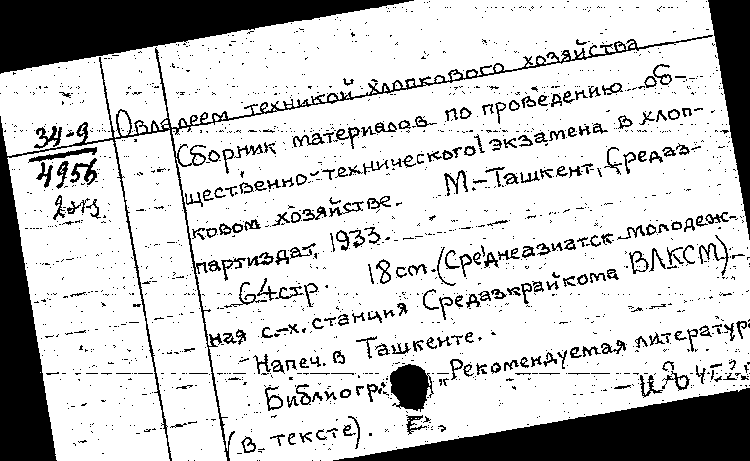 34-9
4956
2 экз.
Овладеем техникой хлопкового хозяйства
Сборник материалов по проведению об-
щественно-технического экзамена в хлоп-
ковом хозяйстве. М.-Ташкент, Средаз-
партиздат, 1933.
64стр. 18см. (Среднеазиатск. молодеж-
ная с.-х. станция Средазкрайкома ВЛКСМ).
Напеч. в Ташкенте.
Библиогр. "Рекомендуемая литература
(в тексте).